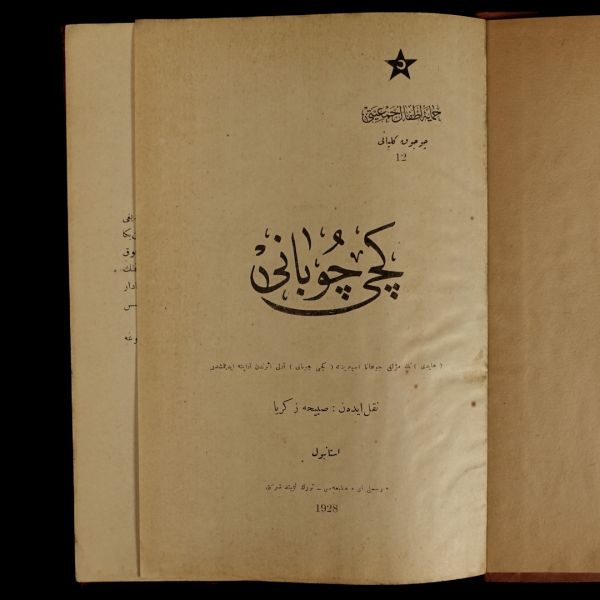 حمایهٔ اطفال جمعیتی
چوجوق كلیاتی
12
كچی چوبانی
( هایدی ) نك مؤلفی جوهانا اسپیرینك ( كچی چوبانی ) آدلی اثرندن آداپته ایدلمشدر
نقل ایدەن : صبیحه زكریا
استانبول
« رسملی آی » مطبعه‌سی — تورك
1928